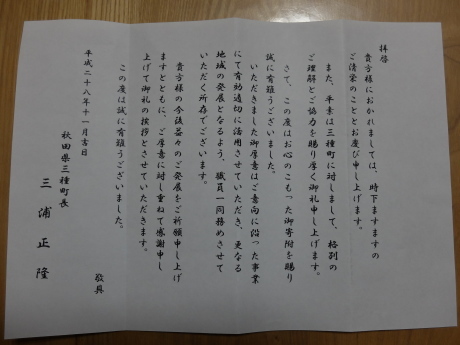 拝啓
貴方様におかれましては、時下ますますの
ご清栄のこととお慶び申し上げます。
また、平素は三種町に対しまして、格別の
ご理解とご協力を賜り厚く御礼申し上げます。
さて、この度はお心のこもった御寄附を賜り
誠に有難うございました。
いただきました御厚意はご意向に沿った事業
にて有効適切に活用させていただき、更なる
地域の発展となるよう、職員一同務めさせて
いただく所存でございます。
貴方様の今後益々のご発展をご祈願申し上げ
ますとともに、ご厚意に対し重ねて感謝申し
上げて御礼の挨拶とさせていただきます。
この度は誠に有難うございました。
敬具
平成二十八年十一月吉日
秋田県三種町長
三浦正隆